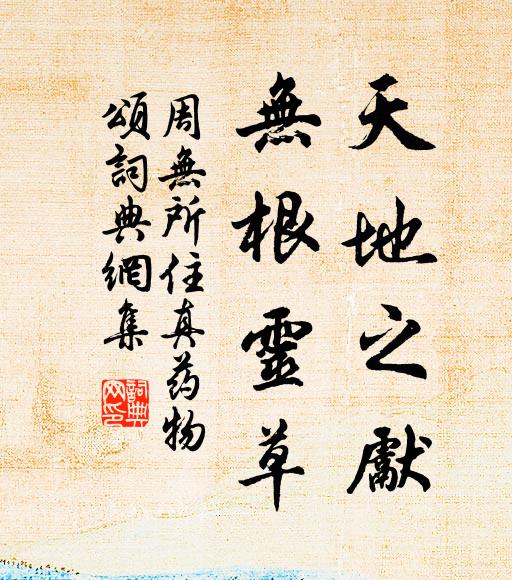 天地之獻
無根靈草
周無所住真药物
頌詞典網集
詞典
网印